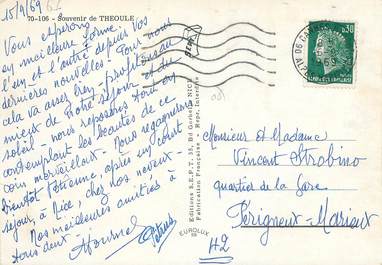 15/9/69
70-106 - Souvenir de THEOULE
Vous espérons
en meilleure forme
l'un et l'autre depuis vos
dernières nouvelles. Pour nous
cela va assez bien, profitons au
mieux de notre séjour et du
soleil - nous reposons tout en
contemplant les beautés de ce
coin merveilleux. Nous regagnerons
bientôt après un court
séjour, à Nice, chez nos neveux -
Nos meilleures amitiés à
tous deux -
Editions S.E.P.T. 15, Bd Gorbella NICE
Fabrication Française - Repr. interdite
EUROLUX
0,30
Monsieur et Madame
Vincent Strobino
quartier de la Gare
Périgneux - Marieux
42